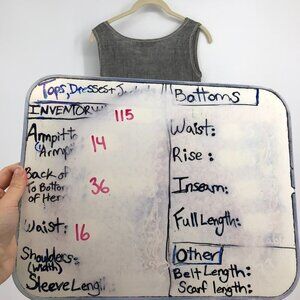 Tops, Dresses + J
Bottoms
INVENTORY#
115
Armpit
to
Armpi
14
Back of
To Bottom
of Hem
36
Waist: 16
Shoulders:
(width)
Sleeve Length
Waist:
Rise:
Inseam:
Full Length:
Other
Belt Length:
Scarf length: